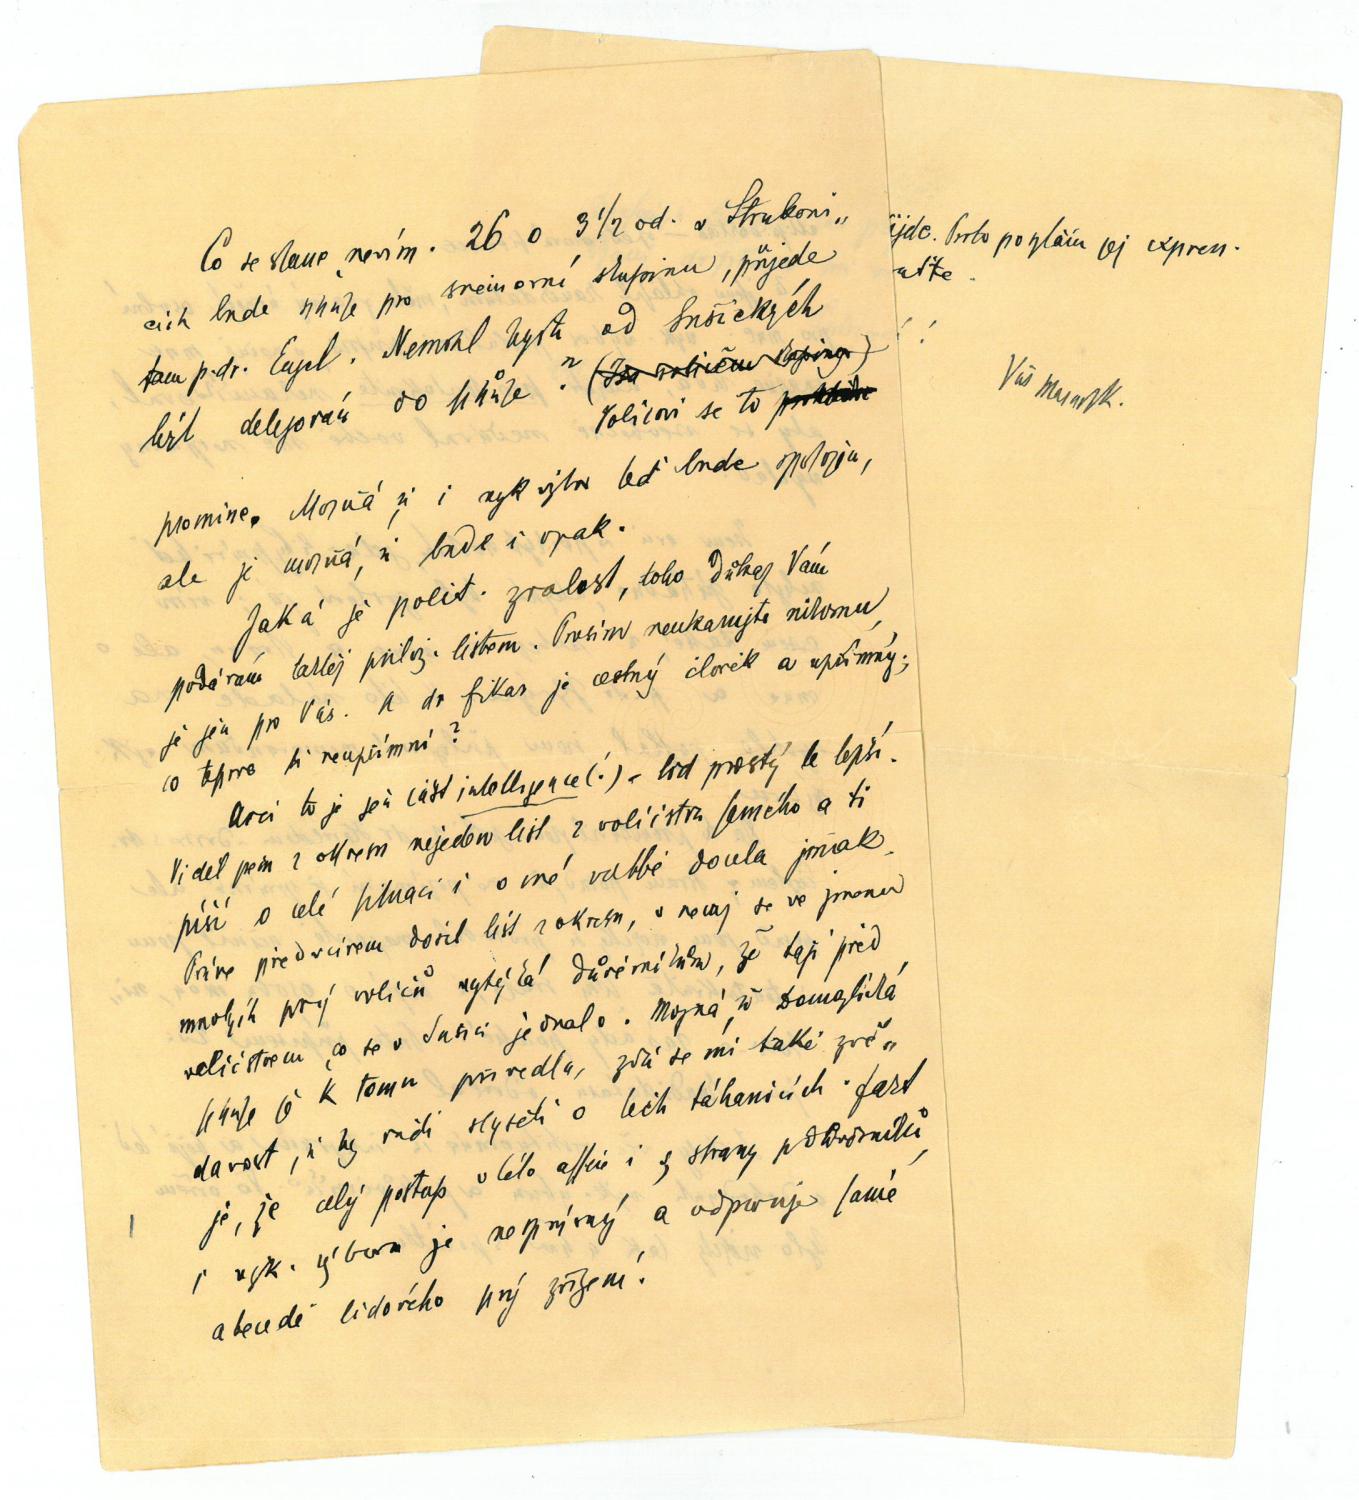 Co se stane, nevím. 26 o 3 1/2 od. v Strakoni„
cích bude schůze pro sněmovní skupinu, přijede
tam p. dr. Engel. Nemohl byste od Sušických
být delegován do schůze? (
Voličovi se to
promine. Možná, ž i vyk výbor teď bude
ale je možná, ž bude i opak.
Jaká je polit. zralost, toho důkaz Vám
podávám tamtéj přilož. listem. Prosím neukazujte nikomu,
je jen pro Vás. A dr Fikar je čestný člověk a upřímný;
co teprve ti neupřímní?
Arci to je jen část intelligence(!) – lid prostý le lepší.
Viděl jsem z okresu nejeden list z voličstva samého a ti
píší o celé situaci i o mé volbě docela jinak.
Práve předvčírem došel list z okresu, v němž se ve jmenu
mnohých prý voličů vytýká důvěrníkům, že tají před
voličstvem, co se v Sušici jednalo. Možná, ž Domažlická
schůze je k tomu přivedla, zdá se mi také zvě„
davost, ž by rádi slyšeli o těch táhanicích. Jazt
je, že celý postup v této affře i z strany důvěrníků
i vyk. výboru je nesprávný a odporuje samé
abecedě lidového prý zřízení.
ijde. Proto posýlám jej expren.
Váš Masaryk.